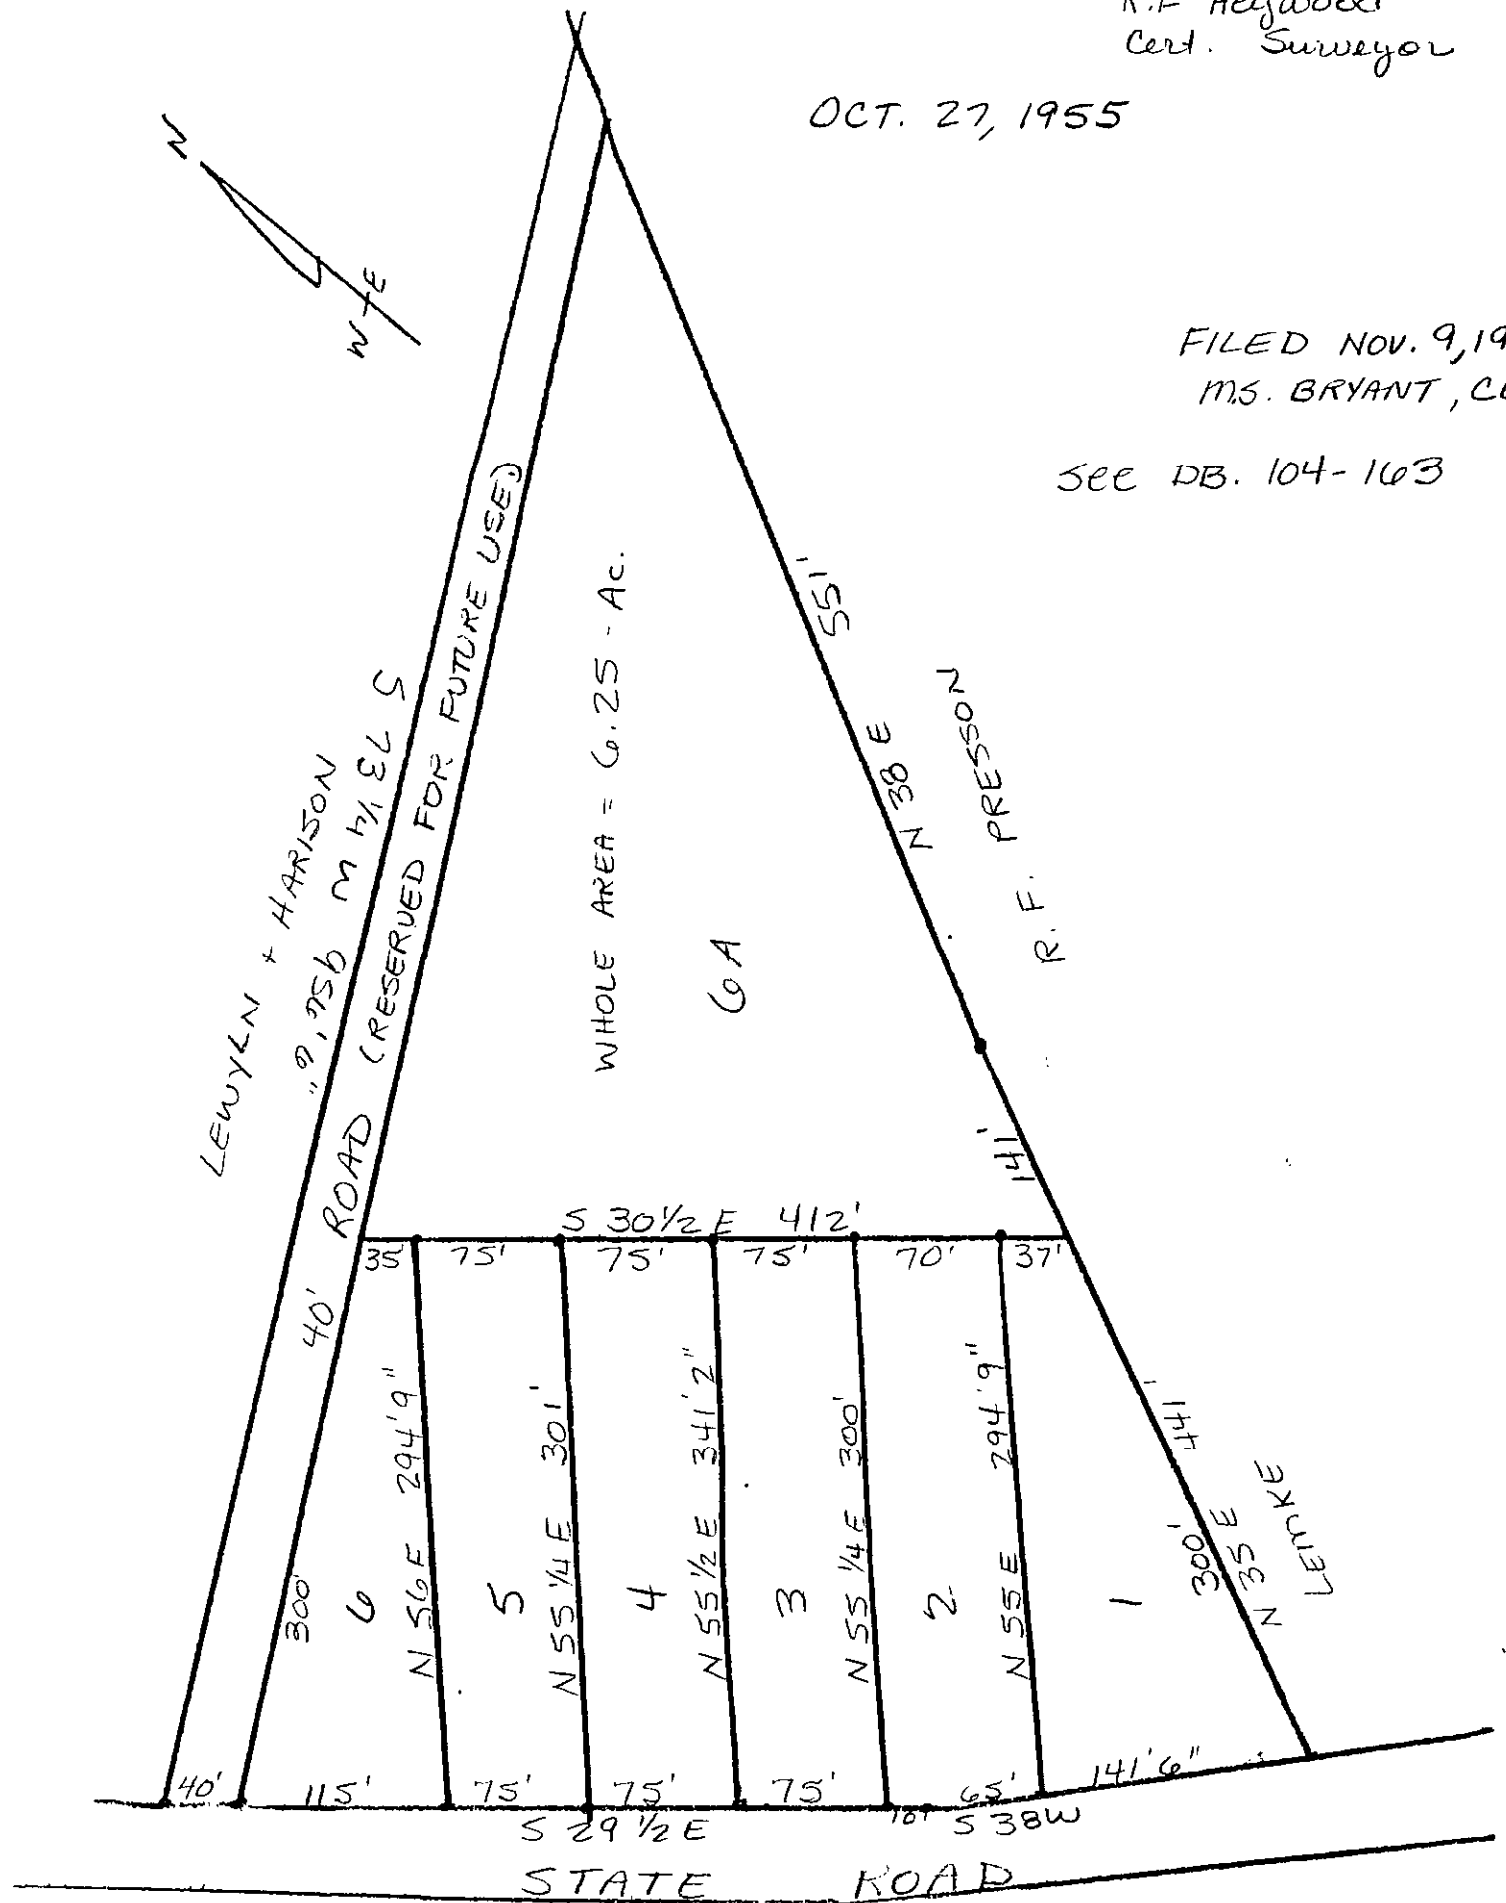 R.F Heywood
Cert. Surveyor
OCT. 27, 1955
N
W E
FILED NOV. 9, 19
M.S. BRYANT, CL
See DB. 104-163
LEWYLN + HARISON
S 73 1/4 W 956'6"
40' ROAD (RESERVED FOR FUTURE USE)
WHOLE AREA = 6.25 - AC.
6A
551'
N 38 E
R. F. PRESSON
141'
S 30 1/2 E 412'
35' 75' 75' 75' 70' 37'
441'
300'
N 35 E
LEMKE
300'
6
N 56 E 294'9"
5
N 55 1/4 E 301'
4
N 55 1/2 E 341'2"
3
N 55 1/4 E 300'
2
N 55 E 294'9"
1
40' 115' 75' 75' 75' 10' 65' 141'6"
S 29 1/2 E S 38W
STATE ROAD